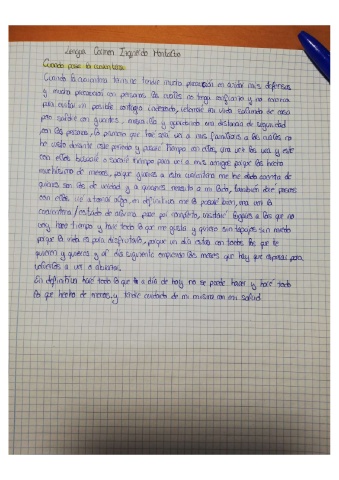 Lengua Carmen Izquierdo
Cuando pase la cuarentena
Cuando la cuarentena termine tendré mucha precaución en cuidar mis defensas
y mucha precaución con personas las cuales no tenga confianza y no conozca
para evitar un posible contagio indeseado, retomaré mi vida saliendo de casa
pero saldré con guantes, mascarilla y guardando una distancia de seguridad
con las personas, lo primero que haré será ver a mis familiares a los cuales no
he visto durante este periodo y pasaré tiempo con ellos, una vez los vea y esté
con ellos buscaré o sacaré tiempo para ver a mis amigos porque los hecho
muchísimo de menos, porque gracias a esta cuarentena me he dado cuenta de
quienes son los de verdad y a quienes necesito a mi lado, también daré paseos
con ellos, iré a tomar algo, en definitiva me lo pasaré bien, una vez la
cuarentena / estado de alarma pase por completo, visitaré lugares a los que no
voy hace tiempo y haré todo lo que me gusta y quiero sin tapujos sin miedo
porque la vida es para disfrutarla, porque un día estás con todos los que te
quieren y quieres y al día siguiente empiezan los meses que hay que esperar para
volverlos a ver o abrazar.
En definitiva haré todo lo que a día de hoy no se puede hacer y haré todo
lo que hecho de menos, y tendré cuidado de mi misma con mi salud.